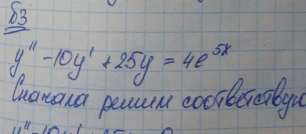 БЗ
y'' - 10y' + 25y = 4e^{5x}
Сначала решим соответствую